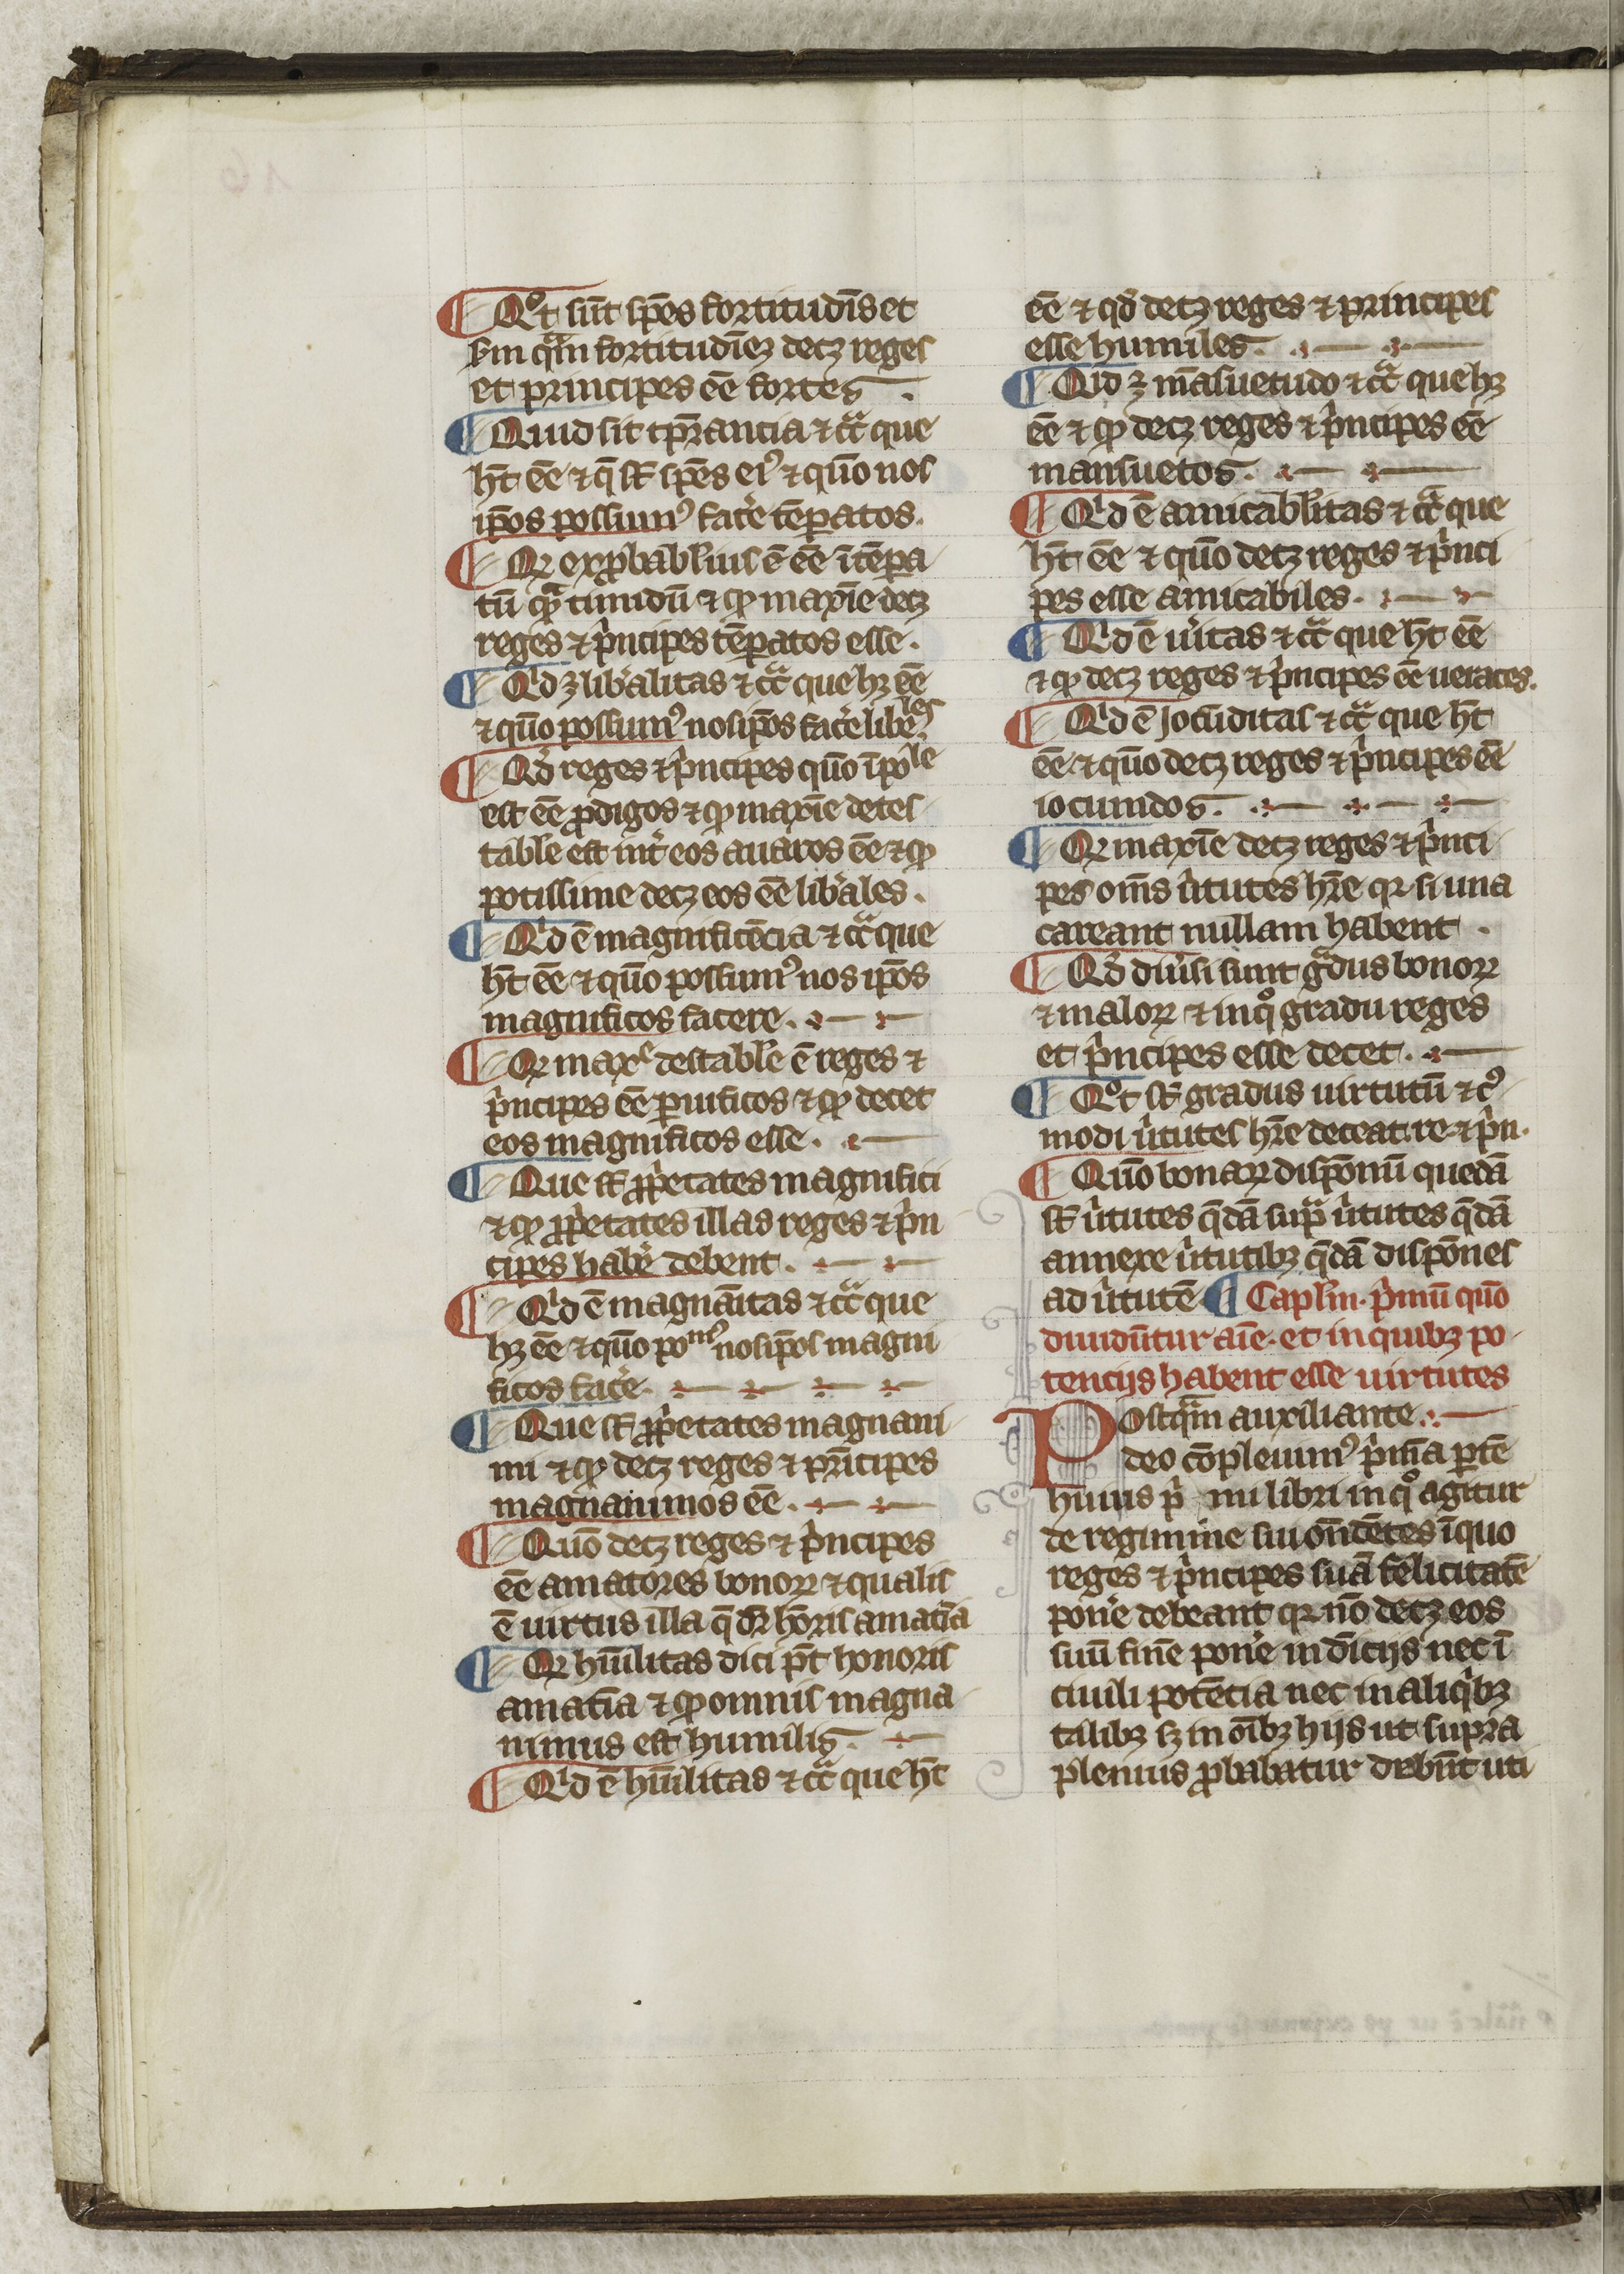 ¶ Qͦt sūt sp̄es fortitudīs et
scꝺm qᷓm fortitudīeꝫ decꝫ reges
et principes eē fortes .
¶ Quid sit tꝑancia ⁊ cᷓ que
hn̄t eē ⁊ q̄ sūt sp̄es eiꝰ ⁊ quō nos
ip̄os possumꝰ fac̓e tēꝑatos .
¶ Qꝛ exꝓbabilius ē eē ītēꝑa
tū qᷓ timidū ⁊ ꝙ maxīe decꝫ
reges ⁊ pͥncipes tēꝑatos esse .
¶ Qͥd ꝫ lib̓alitas ⁊ cᷓ que hꝫ eē
⁊ quō possumꝰ nosip̄os fac̓e lib̓les
¶ Qd̓ reges ⁊ pͥncipes quō īpoˡᵉ
est eē ꝓdigos ⁊ ꝙ maxīe detes
tabˡe est int̓ eos auaros eē ⁊ ꝙ
potissime decꝫ eos eē lib̓ales .
¶ Qͥd ē magnificēcia ⁊ cᷓ que
hn̄t eē ⁊ quō possumꝰ nos ip̄os
magnificos facere .
¶ Qꝛ maxᵉ destabˡe ē reges ⁊
pͥncipes eē ꝑuificos ⁊ ꝙ decet
eos magnificos esse .
¶ Que sūt ꝓpͥetates magnifici
⁊ ꝙ ꝓpͥetates illas reges ⁊ pͥn
cipes hab̓e debent .
¶ Qͥd ē magnāitas ⁊ cᷓ que
hꝫ eē ⁊ quō poᵐꝰ nosip̄os magni
ficos fac̓e .
¶ Que sūt ꝓpͥetates magnani
mi ⁊ ꝙ decꝫ reges ⁊ prīcipes
magnanimos eē .
¶ Quō decꝫ reges ⁊ pͥncipes
eē amatores bonoꝝ ⁊ qualis
ē uirtus illa q̄ dr̄ hōris amatīa
¶ Qꝛ hūilitas dici pt̄ honoris
amatīa ⁊ ꝙ omnis magna
nimus est humilis .
¶ Qͥd ē hūilitas ⁊ cᷓ que hn̄t
eē ⁊ qd̓ decꝫ reges ⁊ principes
esse humiles .
¶ Qͥd ꝫ māsuetudo ⁊ cᷓ que hꝫ
eē ⁊ ꝙ decꝫ reges ⁊ pͥncipes eē
mansuetos .
¶ Qͥd ē amicabˡitas ⁊ cᷓ que
hn̄t eē ⁊ quō decꝫ reges ⁊ pͥnci
pes esse amicabiles .
¶ Qͥd ē u̓itas ⁊ cᷓ que hn̄t eē
⁊ ꝙ decꝫ reges ⁊ pͥncipes eē ueraces .
¶ Qͥd ē Jocūditas ⁊ cᷓ que hn̄t
eē ⁊ quō decꝫ reges ⁊ pͥncipes eē
iocundos .
¶ Qꝛ maxīe decꝫ reges ⁊ pͥnci
pes om̄s u̓tutes hr̄e qꝛ si una
careant nullam habent .
¶ Qd̓ diu̓si sunt gᷓdus bonoꝝ
⁊ maloꝝ ⁊ in qͦ gradu reges
et pͥncipes esse decet .
¶ Qͦt sūt gradus uirtutū ⁊ cꝰ
modi u̓tutes hr̄e deceat re . ⁊ pͥn .
¶ Quō bonaꝝ disp̄onū quedā
sūt u̓tutes q̄dā supᷓ u̓tutes q̄dā
annexe u̓tutibꝫ q̄dā disp̄ones
ad u̓tutē ¶ Caplm̄ . pͥmū quō
diuidūtur aīe . et in quibꝫ po
tencijs habent esse uirtutes
Postqᷓm auxiliante .
deo cōpleuimꝰ pͥmā ꝑtē
huius pͥ mi libri in qͦ agitur
de regimine sui on̄dētes ī quo
reges ⁊ pͥncipes suā felicitatē
pon̓e debeant qꝛ nō decꝫ eos
suū finē pon̓e in dīcijs nec ī
ciuili potēcia nec in aliqͥbꝫ
talibꝫ sꝫ in oībꝫ hijs ut supra
plenius ꝓbabatur debn̄t uti